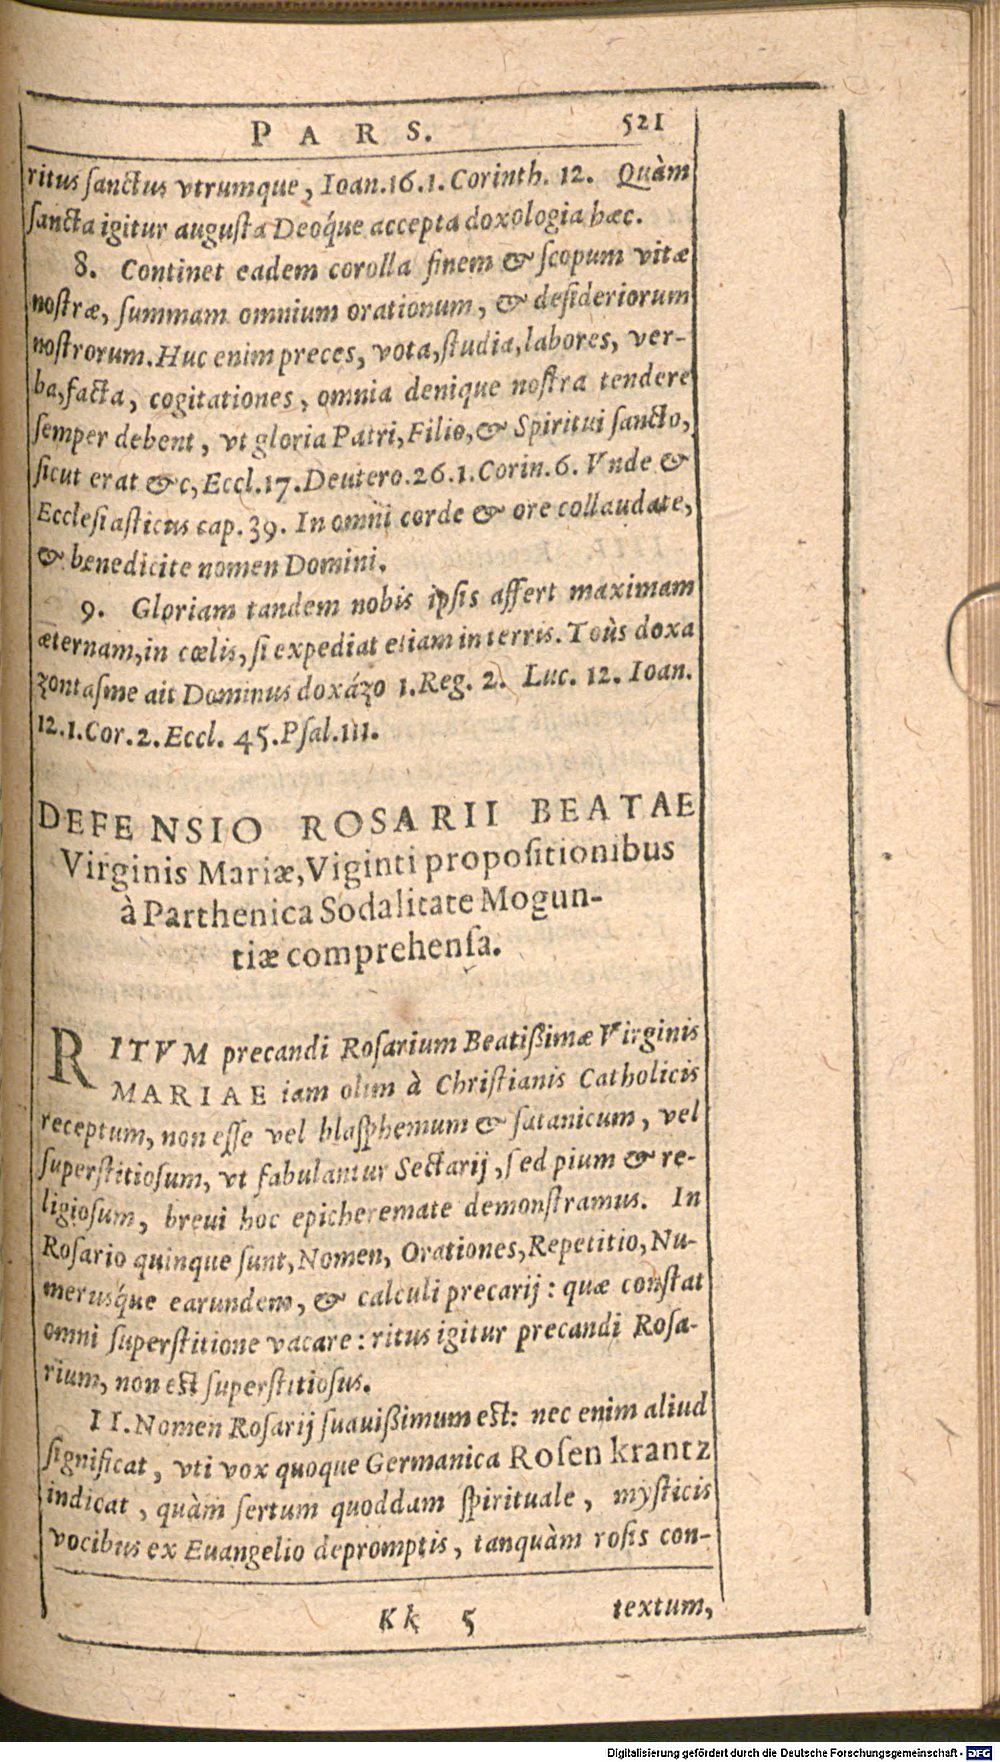 PARS. 521
ritus ſanctus vtrumque, Ioan.16.1.Corinth. 12. Quàm
ſancta igitur auguſta Deoq́ue accepta doxologia hæc.
8. Continet eadem corolla finem & ſcopum vitæ
noſtræ, ſummam omnium orationum, & deſideriorum
noſtrorum. Huc enim preces, vota, ſtudia, labores, ver-
ba, facta, cogitationes, omnia denique noſtra tendere
ſemper debent, vt gloria Patri, Filio, & Spiritui ſancto,
ſicut erat &c, Eccl.17.Deutero.26.1.Corin.6. Vnde &
Eccleſiaſticus cap.39. In omni corde & ore collaudate,
& benedicite nomen Domini.
9. Gloriam tandem nobis ipſis affert maximam
æternam, in cœlis, ſi expediat etiam in terris. Toùs doxa
zontaſme ait Dominus doxázo 1.Reg. 2. Luc. 12. Ioan.
12.1.Cor.2.Eccl. 45.Pſal.111.
DEFENSIO ROSARII BEATAE
Virginis Mariæ, Viginti propoſitionibus
à Parthenica Sodalitate Mogun-
tiæ comprehenſa.
RITVM precandi Roſarium Beatißimæ Virginis
MARIAE iam olim à Chriſtianis Catholicis
receptum, non eſſe vel blaſphemum & ſatanicum, vel
ſuperſtitioſum, vt fabulantur Sectarij, ſed pium & re-
ligioſum, breui hoc epicheremate demonſtramus. In
Roſario quinque ſunt, Nomen, Orationes, Repetitio, Nu-
merusq́ue earundem, & calculi precarij: quæ conſtat
omni ſuperſtitione vacare: ritus igitur precandi Roſa-
rium, non eſt ſuperſtitioſus.
II. Nomen Roſarij ſuauißimum eſt: nec enim aliud
ſignificat, vti vox quoque Germanica Roſen krantz
indicat, quàm ſertum quoddam ſpirituale, myſticis
vocibus ex Euangelio depromptis, tanquàm roſis con-
Kk 5 textum,
Digitalisierung gefördert durch die Deutsche Forschungsgemeinschaft - DFG